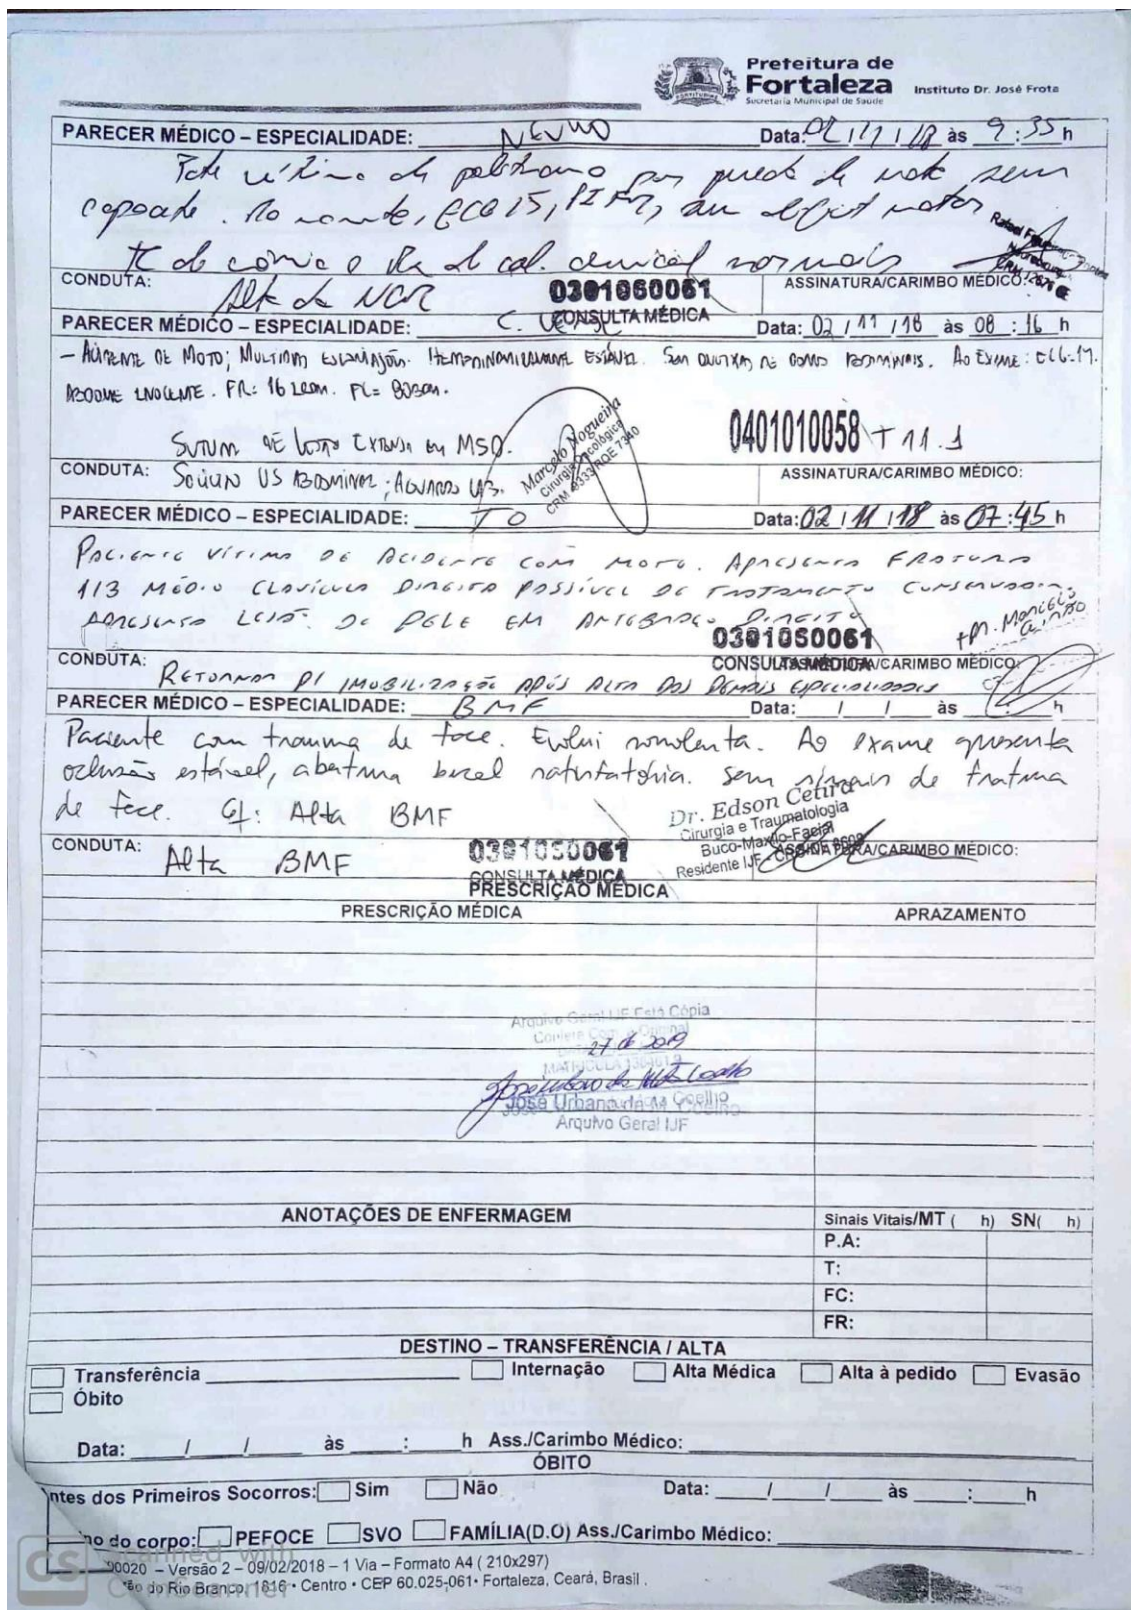 Prefeitura de
Fortaleza
Secretaria Municipal de Saúde
Instituto Dr. José Frota
PARECER MÉDICO – ESPECIALIDADE: NEURO Data: 02/11/18 às 9:35 h
Pcte vítima de politrauma por queda de moto sem
capacete. No momento, ECG 15, PIFR, sem deficit motor
TC de crânio e de col. cervical normais
CONDUTA: Alta da NCR
0301060061
CONSULTA MÉDICA
ASSINATURA/CARIMBO MÉDICO:
PARECER MÉDICO – ESPECIALIDADE: C. Data: 02/11/18 às 08:16 h
– ACIDENTE DE MOTO; MÚLTIPLAS ESCORIAÇÕES. HEMODINAMICAMENTE ESTÁVEL. SEM QUEIXAS DE ABDOMINAIS. AO EXAME:
ABDOME INOCENTE. FR: 16 FC= 80BPM.
SUTURA DE LESÃO EXTENSA EM MSD.
Marcelo Nogueira
Cirurgia Oncológica
0401010058 + 11.1
CONDUTA: SOLICITO US ABDOMINAL; AGUARDO US.
ASSINATURA/CARIMBO MÉDICO:
PARECER MÉDICO – ESPECIALIDADE: TO Data: 02/11/18 às 07:45 h
PACIENTE VÍTIMA DE ACIDENTE COM MOTO. APRESENTA FRATURA
1/3 MÉDIO CLAVÍCULA DIREITA POSSÍVEL DE TRATAMENTO CONSERVADOR.
APRESENTA LESÃO DE PELE EM ANTEBRAÇO DIREITO
0301060061
CONSULTA MÉDICA
CONDUTA: RETORNAR P/ IMOBILIZAÇÃO APÓS ALTA DAS DEMAIS ESPECIALIDADES
ASSINATURA/CARIMBO MÉDICO:
PARECER MÉDICO – ESPECIALIDADE: BMF Data: / / às : h
Paciente com trauma de face. Evolui sonolenta. Ao exame apresenta
oclusão estável, abertura bucal satisfatória. Sem sinais de fratura
de face. Cd: Alta BMF
Dr. Edson Cetira
Cirurgia e Traumatologia
Buco-Maxilo-Facial
Residente IJF
CONDUTA: Alta BMF
0301060061
CONSULTA MÉDICA
ASSINATURA/CARIMBO MÉDICO:
PRESCRIÇÃO MÉDICA
PRESCRIÇÃO MÉDICA APRAZAMENTO
Arquivo Geral IJF Está Cópia
Confere Com o Original
José Urbano da M. Coelho
Arquivo Geral IJF
ANOTAÇÕES DE ENFERMAGEM
Sinais Vitais/MT ( h) SN( h)
P.A:
T:
FC:
FR:
DESTINO – TRANSFERÊNCIA / ALTA
Transferência Internação Alta Médica Alta à pedido Evasão
Óbito
Data: / / às : h Ass./Carimbo Médico:
ÓBITO
ntes dos Primeiros Socorros: Sim Não Data: / / às : h
no do corpo: PEFOCE SVO FAMÍLIA(D.O) Ass./Carimbo Médico:
00020 – Versão 2 – 09/02/2018 – 1 Via – Formato A4 ( 210x297)
ão do Rio Branco, 1816 • Centro • CEP 60.025-061• Fortaleza, Ceará, Brasil .
CS Scanned with
CamScanner